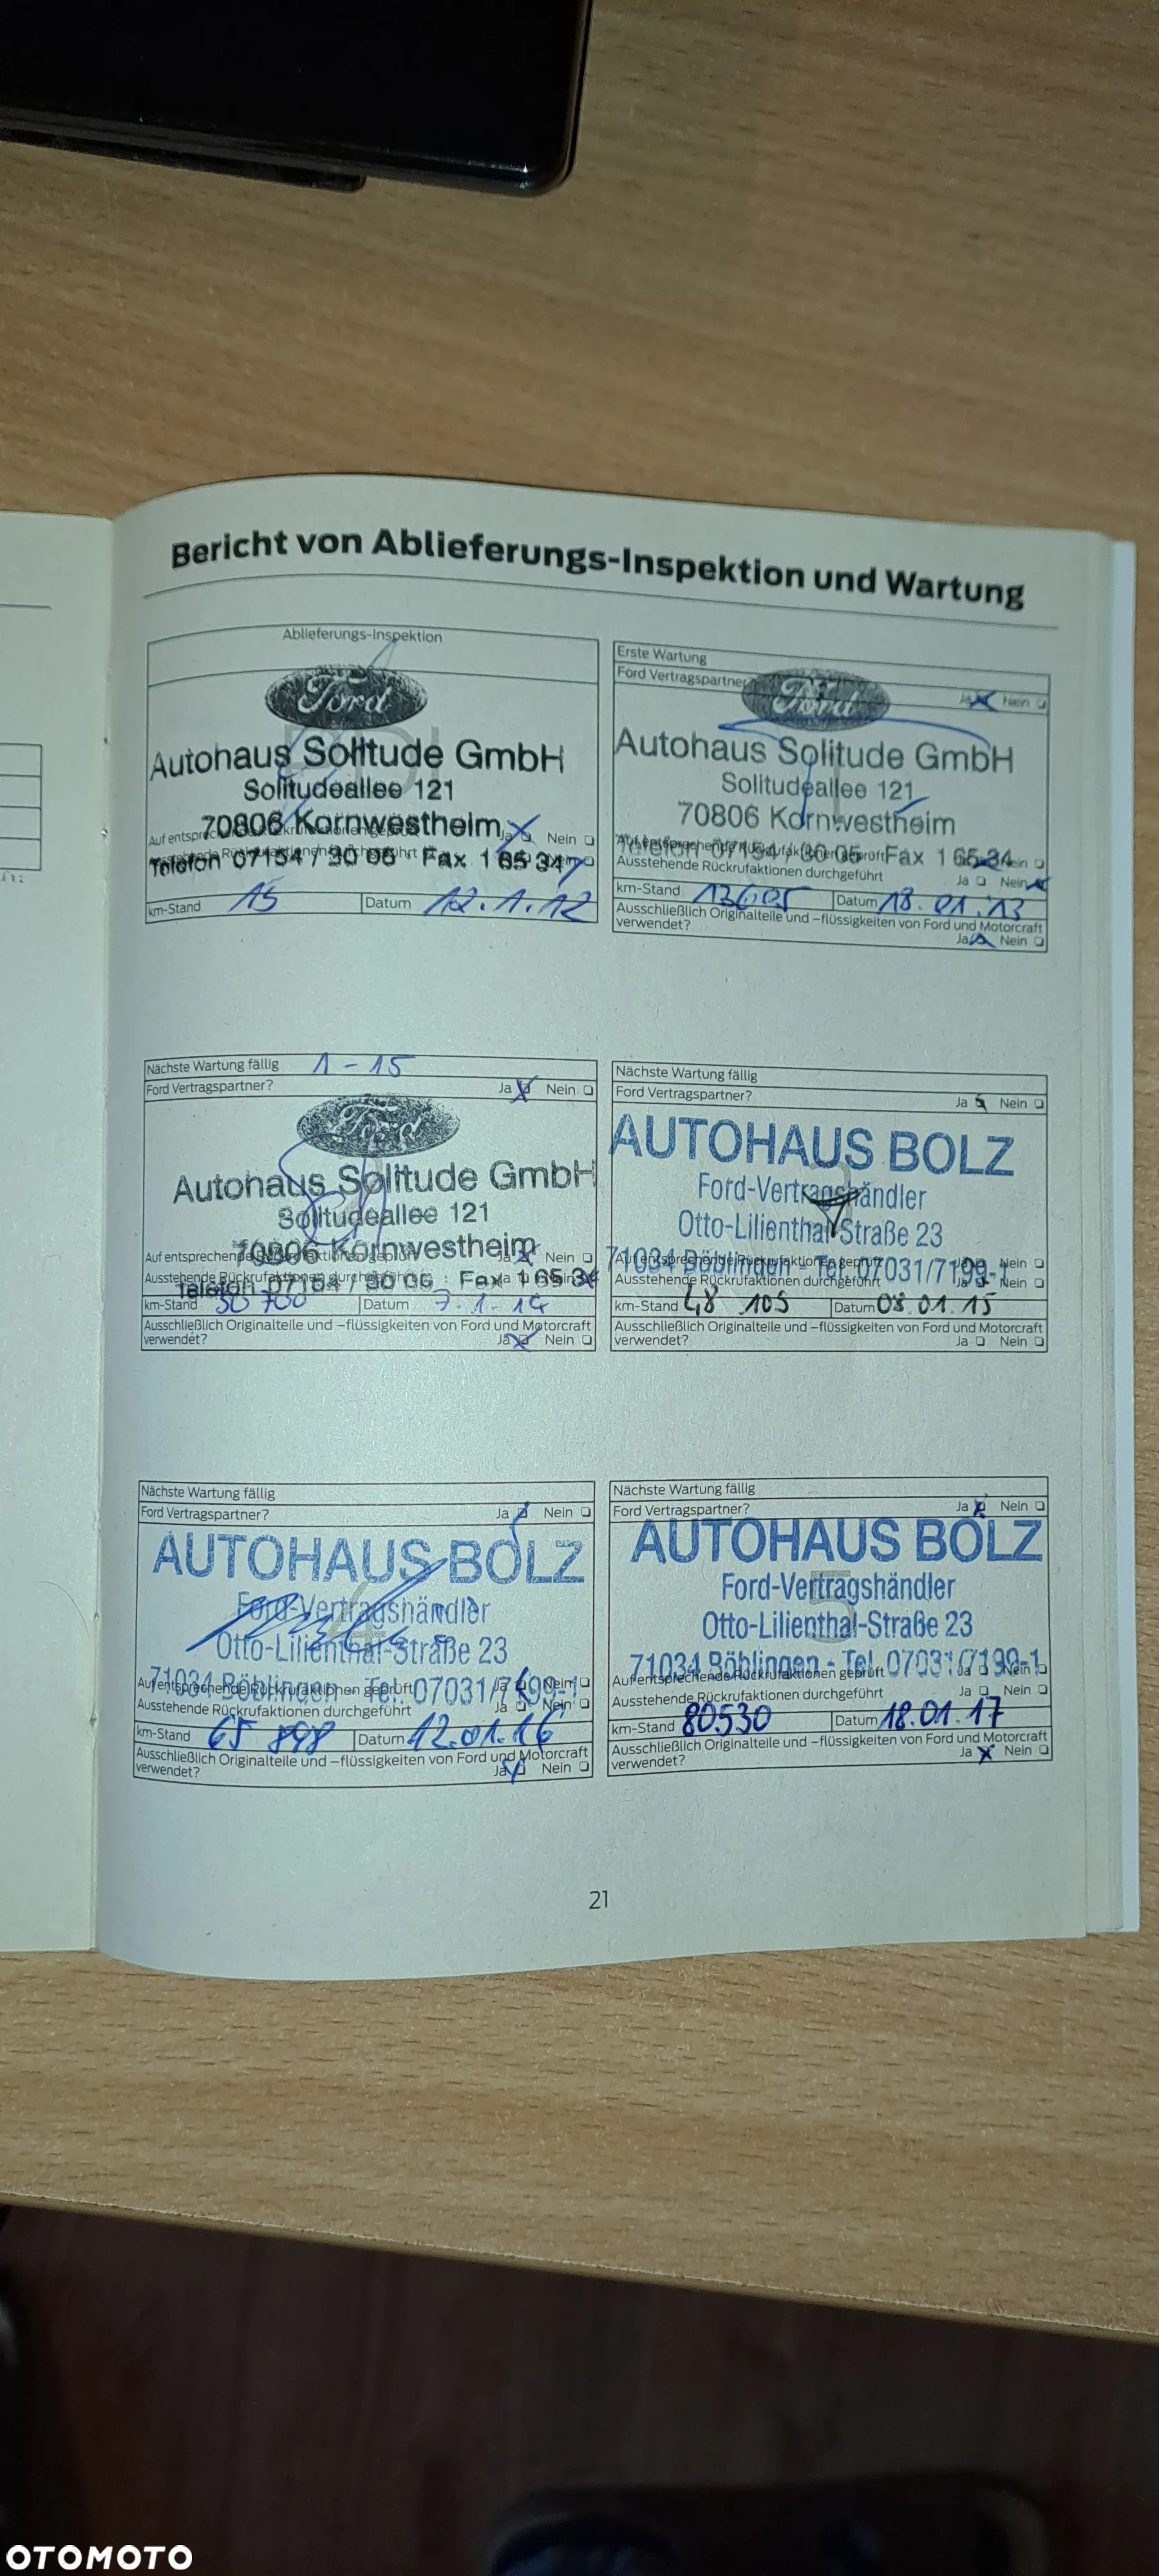 Bericht von Ablieferungs-Inspektion und Wartung
Ablieferungs-Inspektion
Ford
Autohaus Solitude GmbH
Solitudeallee 121
70806 Kornwestheim
Ja Nein
Telefon 07154 / 30 06 Fax 1 65 34
km-Stand 15 Datum 12.1.12
Erste Wartung
Ford Vertragspartner
Ja Nein
Ford
Autohaus Solitude GmbH
Solitudeallee 121
70806 Kornwestheim
Fax 1 65 34
Ausstehende Rückrufaktionen durchgeführt
Ja Nein
km-Stand 13605 Datum 18.01.13
Ausschließlich Originalteile und –flüssigkeiten von Ford und Motorcraft
verwendet?
Ja Nein
Nächste Wartung fällig 1-15
Ford Vertragspartner? Ja Nein
Ford
Autohaus Solitude GmbH
Solitudeallee 121
70806 Kornwestheim
Nein
Telefon 07154 / 30 06 Fax 1 65 34
km-Stand 30 700 Datum 7.1.14
Ausschließlich Originalteile und –flüssigkeiten von Ford und Motorcraft
verwendet? Ja Nein
Nächste Wartung fällig
Ford Vertragspartner?
Ja Nein
AUTOHAUS BOLZ
Ford-Vertragshändler
Otto-Lilienthal-Straße 23
71034 Böblingen - Tel. 07031/7199-1
Nein
Ausstehende Rückrufaktionen durchgeführt Nein
km-Stand 48 105 Datum 08.01.15
Ausschließlich Originalteile und –flüssigkeiten von Ford und Motorcraft
verwendet? Ja Nein
Nächste Wartung fällig
Ford Vertragspartner? Ja Nein
AUTOHAUS BOLZ
4
Ford-Vertragshändler
Otto-Lilienthal-Straße 23
71034 Böblingen - Tel. 07031/7199-1
Auf entsprechende Rückrufaktionen geprüft Nein
Ausstehende Rückrufaktionen durchgeführt Ja Nein
km-Stand 65 898 Datum 12.01.16
Ausschließlich Originalteile und –flüssigkeiten von Ford und Motorcraft
verwendet? Ja Nein
Nächste Wartung fällig
Ford Vertragspartner? Ja Nein
AUTOHAUS BOLZ
5
Ford-Vertragshändler
Otto-Lilienthal-Straße 23
71034 Böblingen - Tel. 07031/7199-1
Auf entsprechende Rückrufaktionen geprüft Ja Nein
Ausstehende Rückrufaktionen durchgeführt Ja Nein
km-Stand 80530 Datum 18.01.17
Ausschließlich Originalteile und –flüssigkeiten von Ford und Motorcraft
verwendet? Ja Nein
21
OTOMOTO